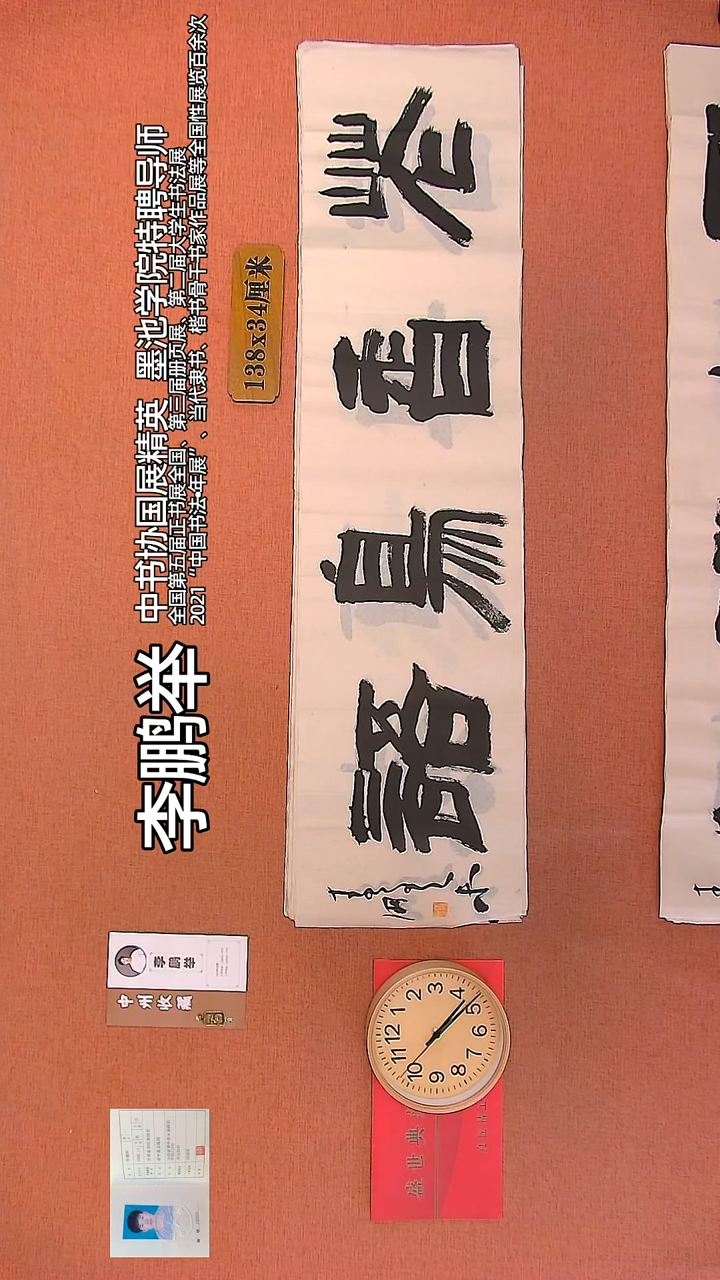 李鹏举
中书协国展精英 墨池学院特聘导师
全国第五届正书展全国、第三届册页展、第二届大学生书法展
2021“中国书法·年展”、当代隶书、楷书骨干书家作品展等全国性展览百余次
138x34厘米
花香鳥語
李鹏举
中州收藏
12
1
2
3
4
5
6
7
8
9
10
11
盛世典